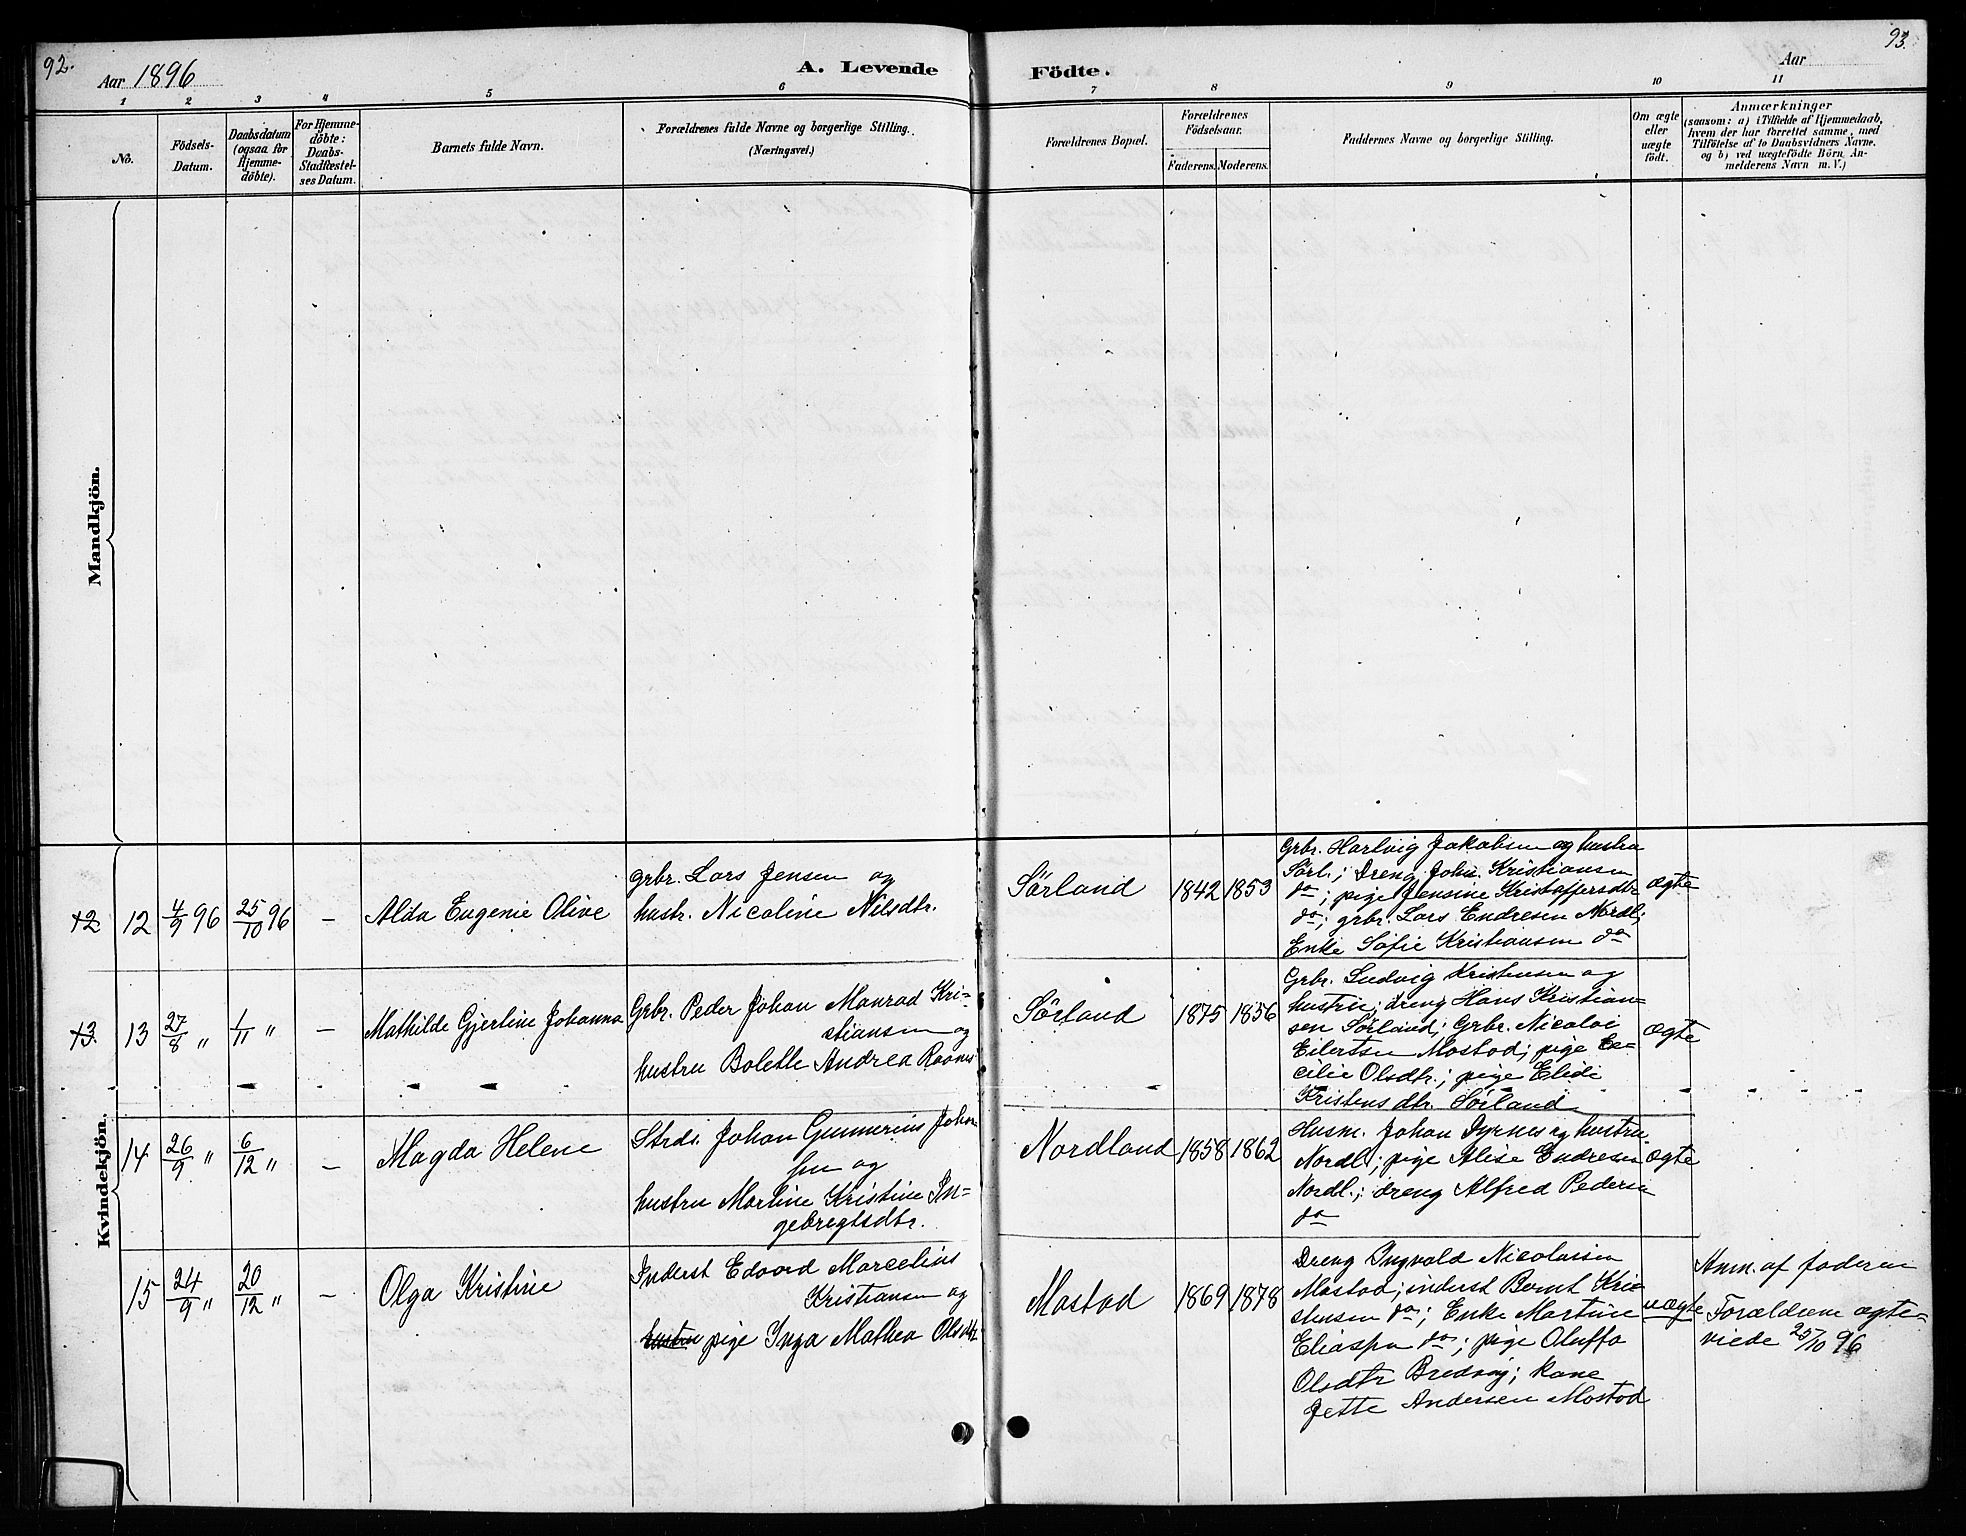 92.
93.
Aar 1896
A. Levende
Födte.
Aar
1 2 3 4 5 6 7 8 9 10 11
No.
Födsels-
Datum.
Daabsdatum
(ogsaa for
Hjemme-
döbte).
For Hjemme-
döbte:
Daabs-
Stadfæstel-
ses Datum.
Barnets fulde Navn.
Forældrenes fulde Navne og borgerlige Stilling.
(Næringsvei.)
Forældrenes Bopæl.
Forældrenes
Födselsaar.
Faderens. Moderens.
Faddernes Navne og borgerlige Stilling.
Om ægte
eller
uægte
födt.
Anmærkninger
(saasom: a) i Tilfælde af Hjemmedaab,
hvem der har forrettet samme, med
Tilföielse af to Daabsvidners Navne.
og b) ved uægtefödte Börn, An-
melderens Navn m. V.)
Mandkjön.
Kvindekjön.
12 12 4/9 96 25/10 96 — Alda Eugenie Olive
grbr. Lars Jensen og
hustr. Nicoline Nilsdtr.
Sørland 1842 1853
Grbr. Hartvig Jakobsen og hustru
Sørl.; Dreng Johs. Kristiansen
do; pige Jensine Kristoffersdtr
do; grbr. Lars Endresen Nordl;
Enke Sofie Kristiansen do
ægte
13. 13 27/8 " 1/11 " — Mathilde Gjertine Johanna
Grbr. Peder Johan Monrad Kri=
stiansen og
hustru Bolette Andrea Raanes
Sørland 1875 1856
Grbr. Ludvig Kristensen og
hustru; dreng Hans Kristian-
sen Sørland; Grbr. Nicolai
Eilertsen Mostad; pige Ce=
cilie Olsdtr.; pige Elidi
Kristensdtr. Sørland
ægte
14 26/9 " 6/12 " — Magda Helene
Strds. Johan Gunnerius Johan
sen og
hustru Martine Kristine In=
gebregtsdtr.
Nordland 1858 1862
Husm. Johan Dyrnes og hustru
Nordl; pige Alise Endresen
Nordl.; dreng Alfred Pedersen
do
ægte
15 24/9 " 20/12 " — Olga Kristine
Inderst Edvard Marcelius
Kristiansen og
hustru pige Inga Mathea Olsdtr
Mostad 1869 1878
Dreng Ingvald Nicolaisen
Mostad; inderst Bernt Kri-
stensen do; Enke Martine
Eliaspn do; pige Oluffa
Olsdtr Bredvig; kone
Jette Andersen Mostad
uægte
Anm. af faderen
Forældrene ægte=
viede 25/10 96